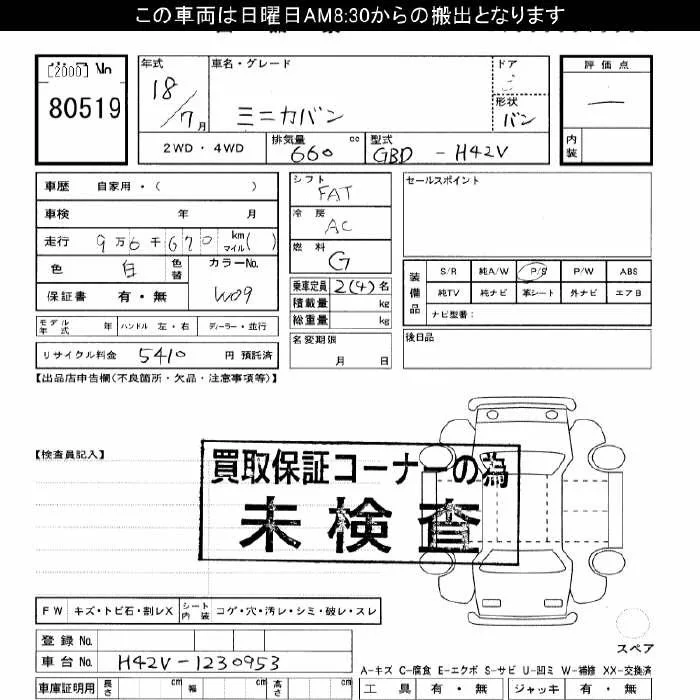 この車両は日曜日AM8:30からの搬出となります
[2000] No
80519
年式
18/7月
車名・グレード
ミニカバン
ドア
形状
バン
評価点
—
内装
2WD・4WD
排気量
660 cc
型式
GBD - H42V
車歴 自家用・( )
車検 年 月
走行 9万6千670 km マイル( )
色 白 色替
カラーNo.
W09
保証書 有・無
モデル年式 年 ハンドル 左・右 ディーラー・並行
リサイクル料金 5410 円 預託済
シフト
FAT
冷房
AC
燃料
G
乗車定員 2(4)名
積載量 kg
総重量 kg
名変期限
月 日
セールスポイント
装備品
S/R 純A/W P/S P/W ABS
純TV 純ナビ 革シート 外ナビ エアB
ナビ型番:
後日品
【出品店申告欄(不良箇所・欠品・注意事項等)】
【検査員記入】
買取保証コーナーの為
未検査
FW キズ・トビ石・割レX シート内装 コゲ・穴・汚レ・シミ・破レ・スレ
登録No.
車台No. H42V-1230953
車庫証明用 長さ cm 幅 cm 高さ cm
スペア
A-キズ C-腐食 E-エクボ S-サビ U-凹ミ W-補修 XX-交換済
工具 有・無 ジャッキ 有・無